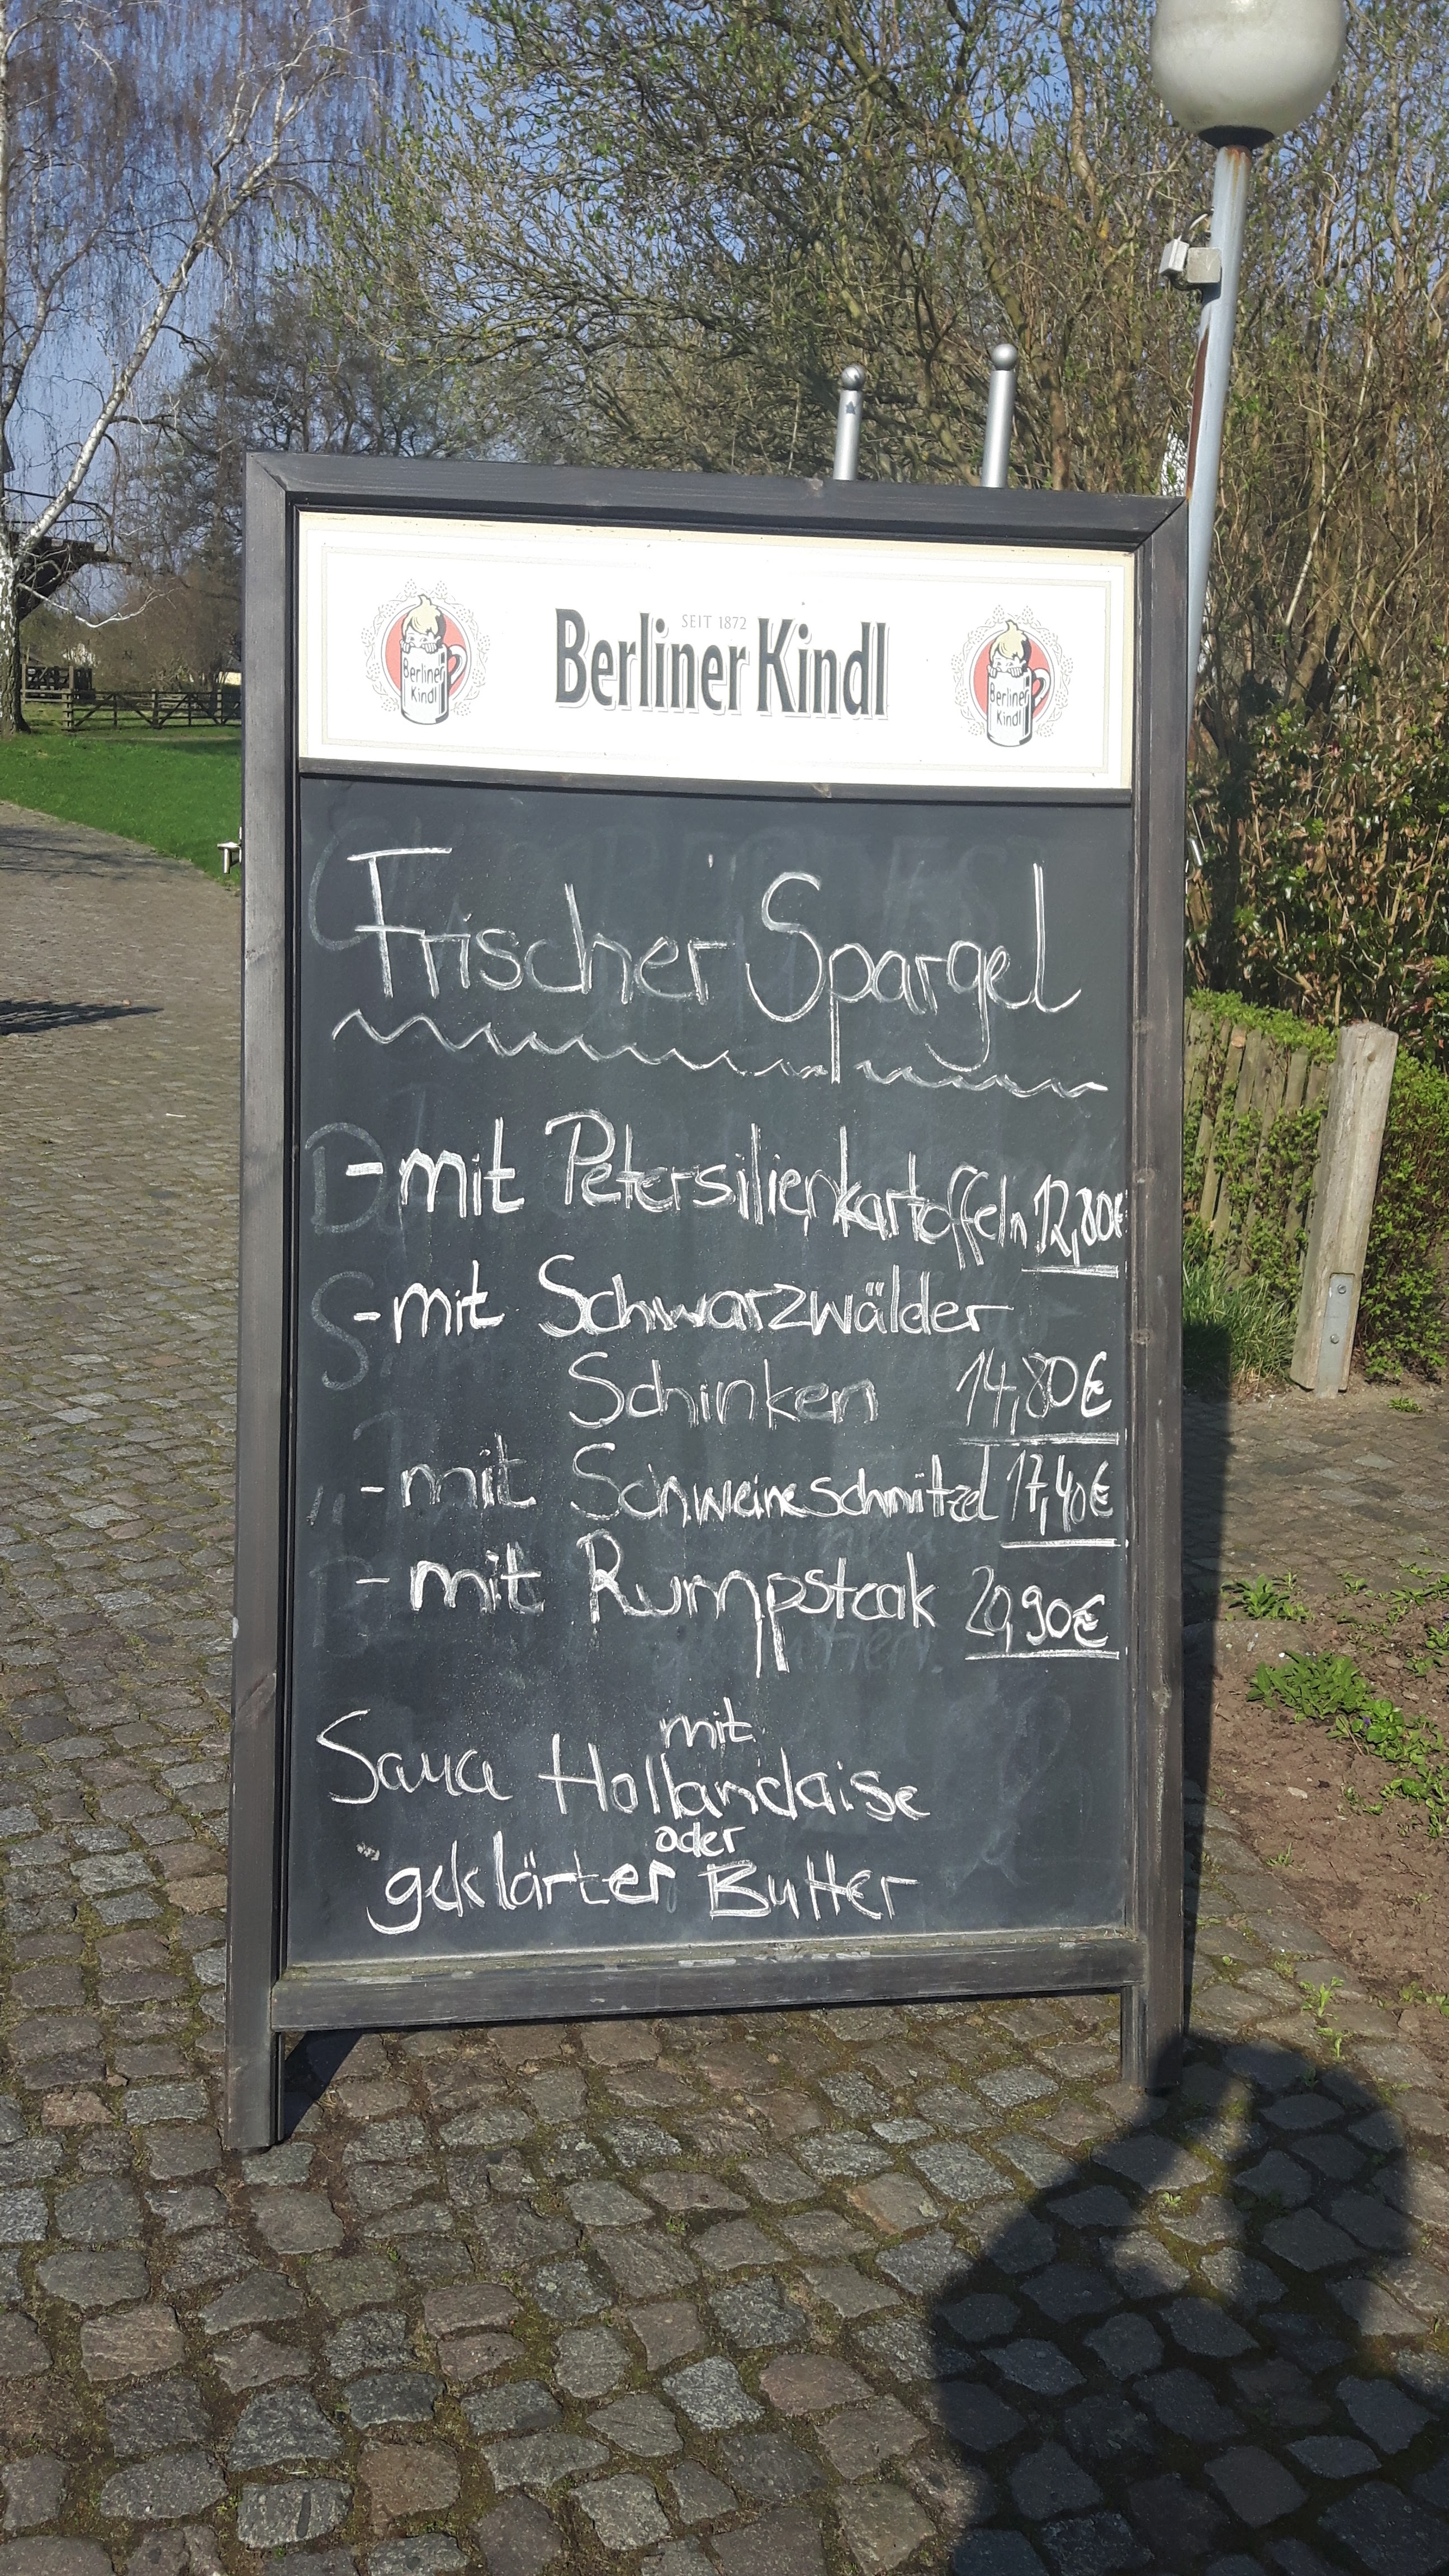 SEIT 1872
Berliner Kindl
Berliner
Kindl
Berliner
Kindl
Frischer Spargel
- mit Petersilienkartoffeln 12,80€
- mit Schwarzwälder
Schinken 14,80€
- mit Schweineschnitzel 17,40€
- mit Rumpsteak 20,90€
mit
Sauce Hollandaise
oder
geklärter Butter